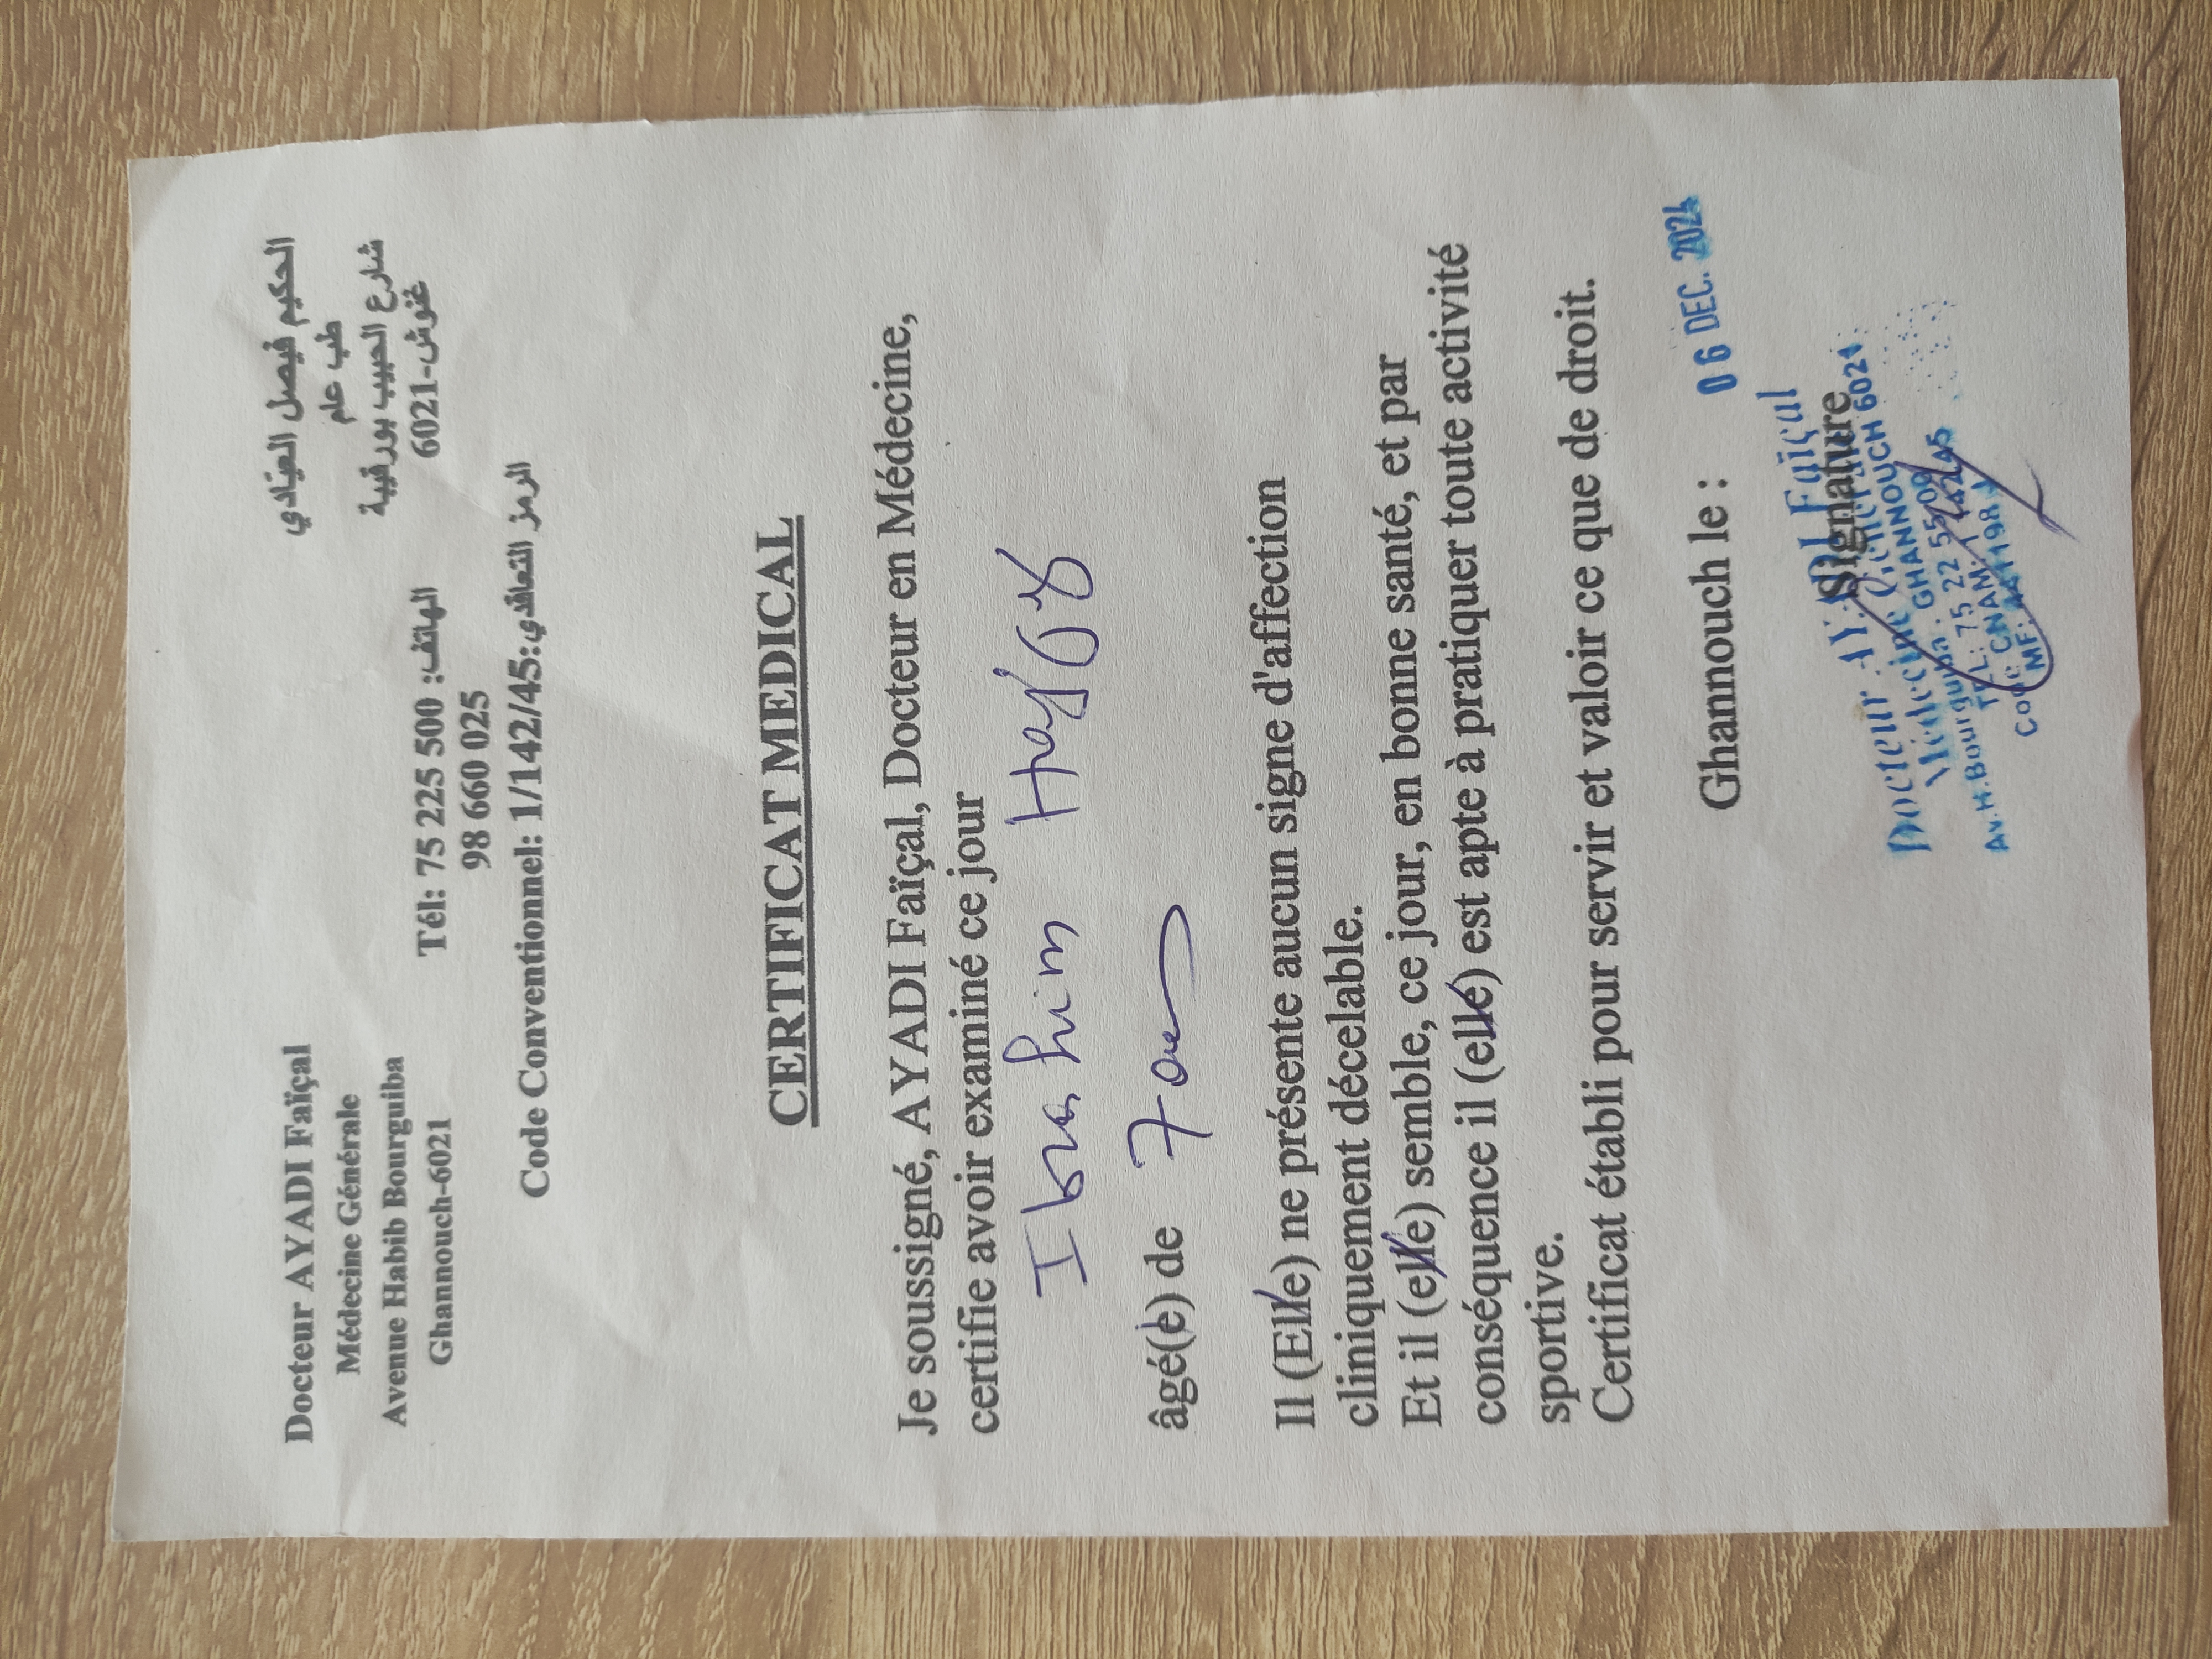 Docteur AYADI Faïçal
Médecine Générale
Avenue Habib Bourguiba
Ghannouch-6021
الحكيم فيصل العيّادي
طب عام
شارع الحبيب بورقيبة
غنوش-6021
Tél: 75 225 500 :الهاتف
98 660 025
Code Conventionnel: 1/142/45:الرمز التعاقدي
CERTIFICAT MEDICAL
Je soussigné, AYADI Faïçal, Docteur en Médecine,
certifie avoir examiné ce jour
Ibrahim
âgé(e) de 7 ans
Il (Elle) ne présente aucun signe d'affection
cliniquement décelable.
Et il (elle) semble, ce jour, en bonne santé, et par
conséquence il (elle) est apte à pratiquer toute activité
sportive.
Certificat établi pour servir et valoir ce que de droit.
Ghannouch le : 06 DEC. 2024
Signature
Docteur AYADI Faïçal
Médecine
Av.H.Bourguiba. GHANNOUCH 6021
TEL: 75 22 55 00
Code CNAM:
MF: